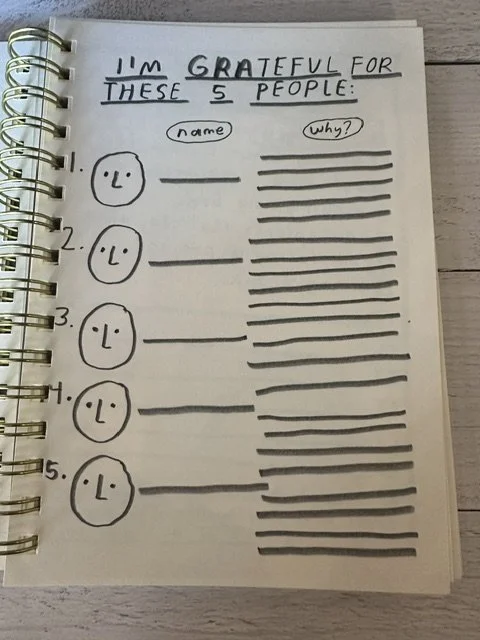 I'M GRATEFUL FOR
THESE 5 PEOPLE:
name why?
1.
2.
3.
4.
5.